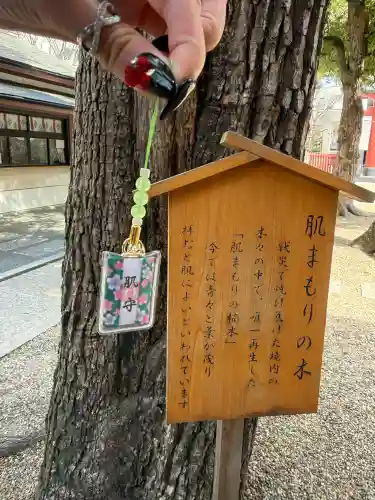 肌まもりの木
戦災で焼け焦げた境内の
木々の中で、唯一再生した
「肌まもりの楠木」
今では青々と葉が茂り
林だと肌によいといわれています
肌守